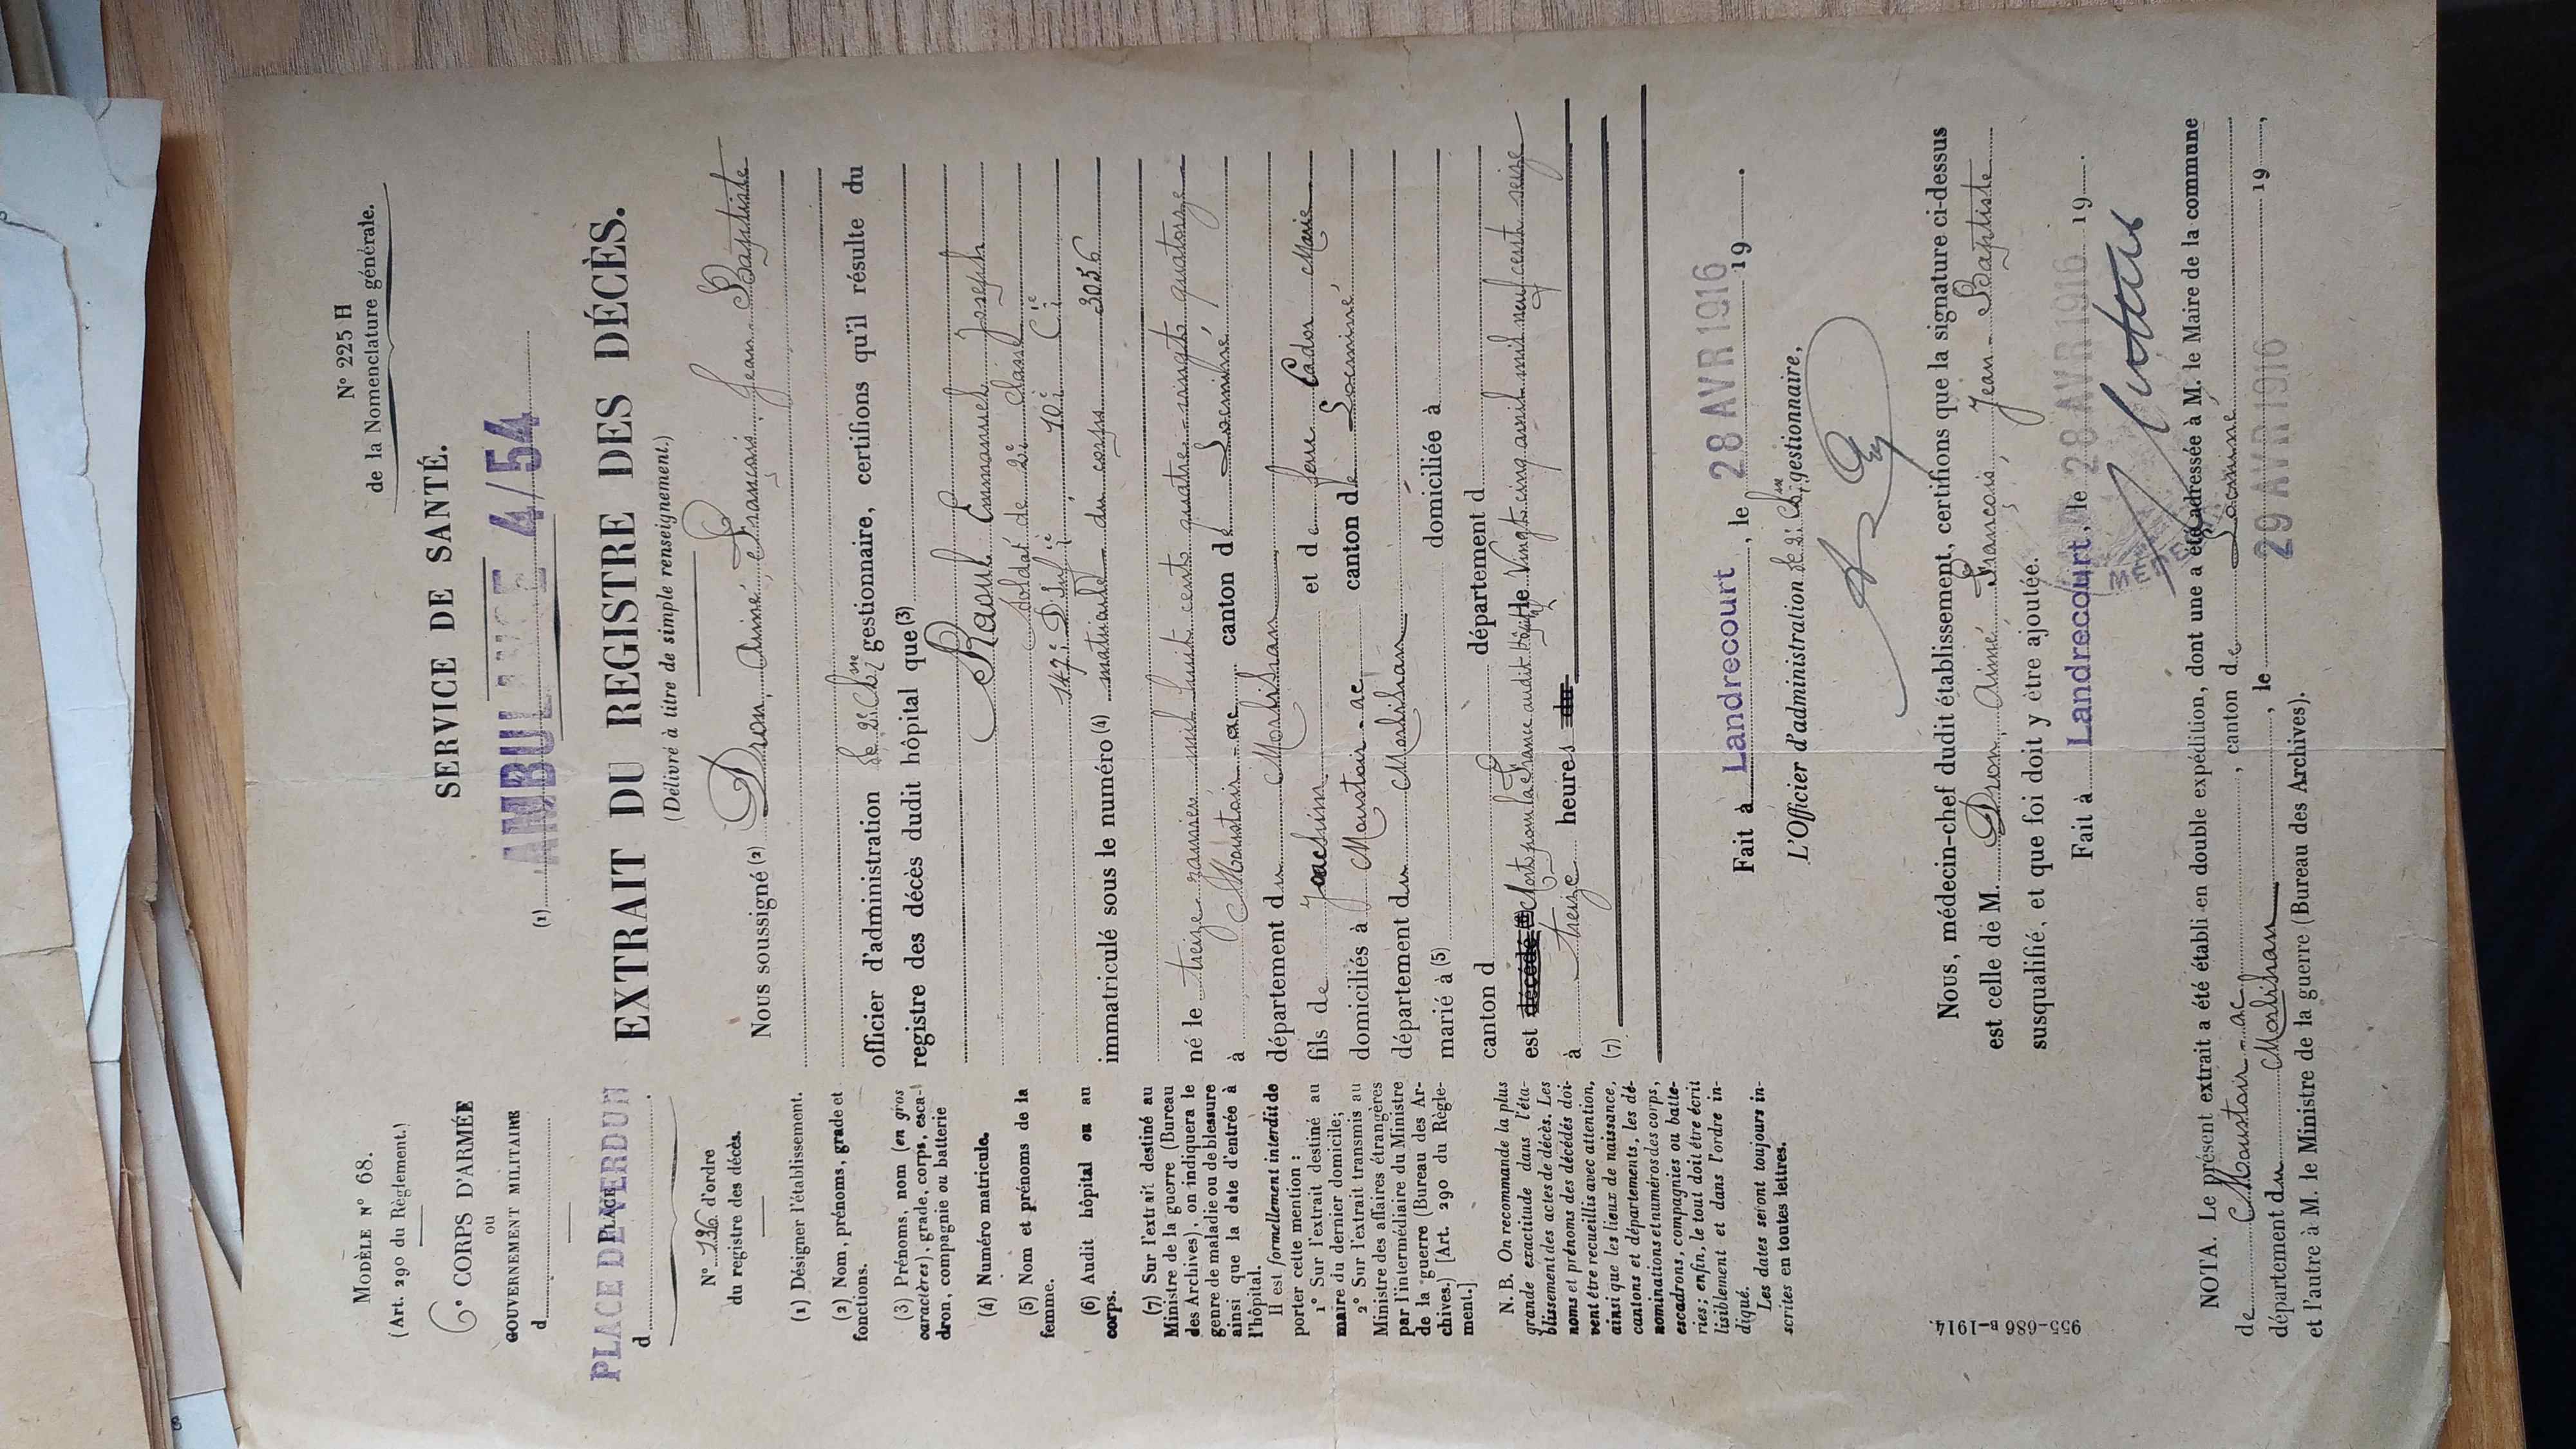 N° 225 H
de la Nomenclature générale.
MODÈLE N° 68.
(Art. 290 du Règlement.)
6e CORPS D'ARMÉE
ou
GOUVERNEMENT MILITAIRE
d
PLACE
PLACE DE VERDUN
d
N° 136 d'ordre
du registre des décès.
SERVICE DE SANTÉ.
(1) AMBULANCE 4/54
EXTRAIT DU REGISTRE DES DÉCÈS.
(Délivré à titre de simple renseignement.)
Nous soussigné (2) Dron, Aimé, François, Jean-Baptiste
officier d'administration de 2e Cl. gestionnaire, certifions qu'il résulte du
registre des décès dudit hôpital que (3)
Raoul Emmanuel Joseph
soldat de 2e classe
147e D'Inf ie, 10e Cie
immatriculé sous le numéro (4) matricule du corps 3056
né le treize janvier mil huit cent quatre-vingt quatorze
à Moustoir-ac canton de Locminé,
département du Morbihan
fils de Joachim et de feue Cador Marie
domiciliés à Moustoir-ac canton de Locminé,
département du Morbihan
marié à (5) domiciliée à
canton d département d
est décédé Mort pour la France audit hôpital le Vingt-cinq avril mil neuf cent seize
à treize heures du
(7)
Fait à Landrecourt, le 28 AVR 1916 19 .
L'Officier d'administration de 2e Cl. gestionnaire,
Nous, médecin-chef dudit établissement, certifions que la signature ci-dessus
est celle de M. Dron, Aimé, François, Jean-Baptiste
susqualifié, et que foi doit y être ajoutée.
Fait à Landrecourt, le 28 AVR 1916 19 .
NOTA. Le présent extrait a été établi en double expédition, dont une a été adressée à M. le Maire de la commune
de Moustoir-ac, canton de Locminé
département du Morbihan, le 29 AVR 1916 19 ,
et l'autre à M. le Ministre de la guerre (Bureau des Archives).
(1) Désigner l'établissement.
(2) Nom, prénoms, grade et
fonctions.
(3) Prénoms, nom (en gros
caractères), grade, corps, esca-
dron, compagnie ou batterie
(4) Numéro matricule.
(5) Nom et prénoms de la
femme.
(6) Audit hôpital ou au
corps.
(7) Sur l'extrait destiné au
Ministre de la guerre (Bureau
des Archives), on indiquera le
genre de maladie ou de blessure
ainsi que la date d'entrée à
l'hôpital.
Il est formellement interdit de
porter cette mention :
1° Sur l'extrait destiné au
maire du dernier domicile;
2° Sur l'extrait transmis au
Ministre des affaires étrangères
par l'intermédiaire du Ministre
de la guerre (Bureau des Ar-
chives.) [Art. 290 du Règle-
ment.]
N. B. On recommande la plus
grande exactitude dans l'éta-
blissement des actes de décès. Les
noms et prénoms des décédés doi-
vent être recueillis avec attention,
ainsi que les lieux de naissance,
cantons et départements, les dé-
nominations et numéros des corps,
escadrons, compagnies ou batte-
ries; enfin, le tout doit être écrit
lisiblement et dans l'ordre in-
diqué.
Les dates seront toujours in-
scrites en toutes lettres.